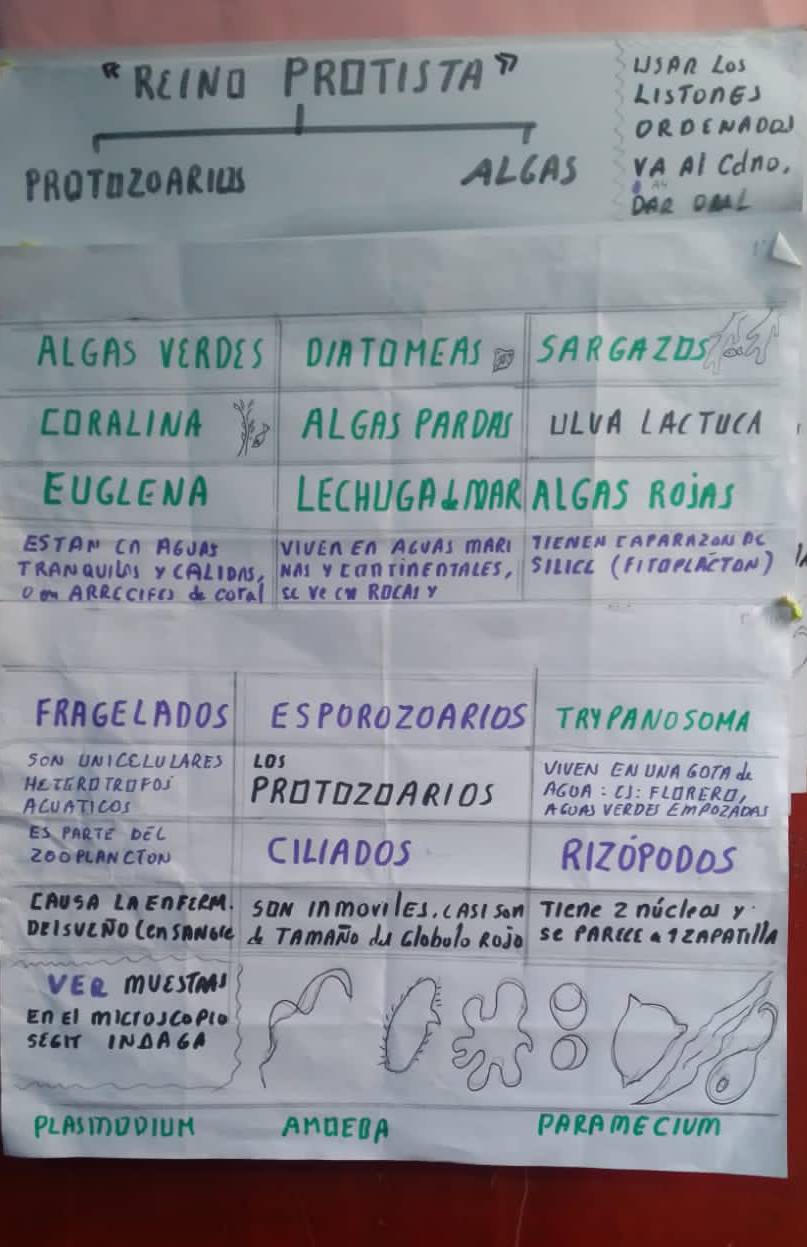 "REINO PROTISTA"
PROTOZOARIOS
ALGAS
USAR LOS
LISTONES
ORDENADOS
VA Al Cdno.
DAR
ALGAS VERDES
DIATOMEAS
SARGAZOS
CORALINA
ALGAS PARDAS
ULVA LACTUCA
EUGLENA
LECHUGA de MAR
ALGAS ROJAS
ESTAN EN AGUAS
TRANQUILAS Y CALIDAS,
O en ARRECIFES de coral
VIVEN EN AGUAS MARI
NAS Y CONTINENTALES,
se ve en ROCAS Y
TIENEN CAPARAZON DE
SILICE (FITOPLÁCTON)
FRAGELADOS
ESPOROZOARIOS
TRYPANOSOMA
SON UNICELULARES
HETEROTROFOS
ACUATICOS
LOS
PROTOZOARIOS
VIVEN EN UNA GOTA de
AGUA: EJ: FLORERO,
AGUAS VERDES EMPOZADAS
ES PARTE DEL
ZOOPLANCTON
CILIADOS
RIZÓPODOS
CAUSA LA ENFERM.
DEL SUEÑO (en SANGRE
SON INMOVILES. CASI SON
de TAMAÑO del Globulo ROJO
Tiene 2 núcleos y
se PARECE a 1 ZAPATILLA
VER MUESTRAS
EN El MICROSCOPIO
SEGIT INDAGA
PLASMODIUM
AMOEBA
PARAMECIUM